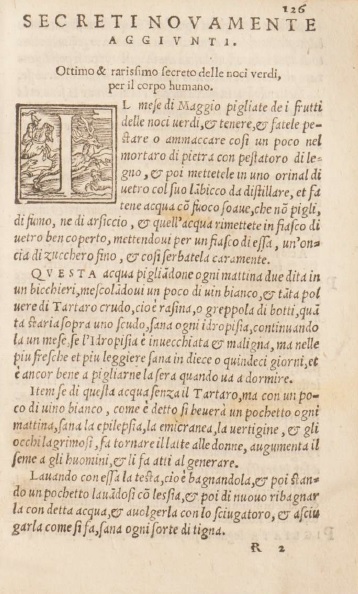 126
SECRETI NOVAMENTE
AGGIVNTI.
Ottimo & rarissimo secreto delle noci verdi,
per il corpo humano.
IL mese di Maggio pigliate de i frutti
delle noci uerdi, & tenere, & fatele pe-
stare o ammaccare cosi un poco nel
mortaro di pietra con pestatoro di le-
gno, & poi mettetele in uno orinal di
uetro col suo lãbicco da distillare, et fa
tene acqua cõ fuoco soaue, che nõ pigli,
di fumo, ne di arsiccio, & quell'acqua rimettete in fiasco di
uetro ben coperto, mettendoui per un fiasco di essa, un'on-
cia di zucchero fino, & cosi serbatela caramente.
QVESTA acqua pigliãdone ogni mattina due dita in
un bicchieri, mescolãdoui un poco di uin bianco, & tãta pol
uere di Tartaro crudo, cioè rasina, o greppola di botti, quã
ta staria sopra uno scudo, sana ogni idropisia, continuando
la un mese, se l'Idropisia è inuecchiata & maligna, ma nelle
piu fresche et piu leggiere sana in diece o quindeci giorni, et
è ancor bene a pigliarne la sera quando ua a dormire.
Item se di questa acqua senza il Tartaro, ma con un po-
co di uino bianco, come è detto si beuerà un pochetto ogni
mattina, sana la epilepsia, la emicranea, la uertigine, & gli
occhi lagrimosi, fa tornare il latte alle donne, augumenta il
seme a gli huomini, & li fa atti al generare.
Lauando con essa la testa, cioè bagnandola, & poi stan-
do un pochetto lauãdosi cõ lessia, & poi di nuouo ribagnar
la con detta acqua, & auolgerla con lo sciugatoro, & asciu
garla come si fa, sana ogni sorte di tigna.
R 2